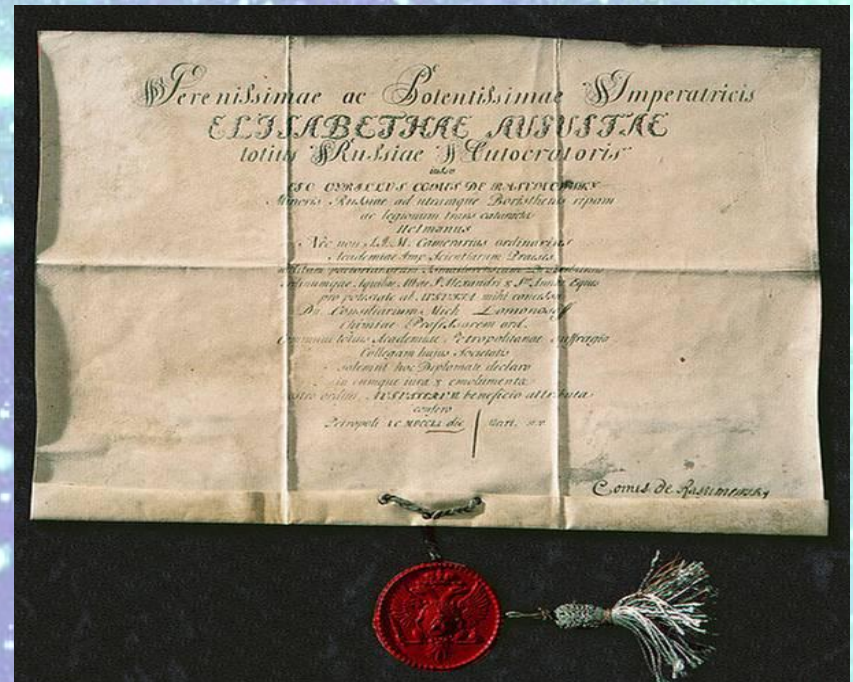 Serenissimae ac Potentissimae Imperatricis
ELISABETHAE AUGUSTAE
totius Russiae Autocratoris
iussu
EGO CYRILLUS COMES DE RASUMOWSKY
Minoris Russiae ad utramque Boristhenis ripam
ac legionum trans cataractas
Hetmanus
Nec non S. I. M. Camerarius ordinarius
Academiae Imp. Scientiarum Praeses
Ordinumque Aquilae Albae S. Alexandri & Stae Annae Eques
pro potestate ab AUGUSTA mihi concessa
Dn. Consiliarium Mich. Lomonosoff
Chimiae Professorem ord.
Communi totius Academiae Petropolitanae suffragio
Collegam hujus Societatis
solemni hoc Diplomate declaro
in eumque iura & emolumenta
ordini AUGUSTAEUM beneficio attributa
confero
Petropoli MDCCLI die Mart.
Comes de Rasumowsky